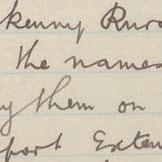 kenny Rura
the names
y them on
port Exten